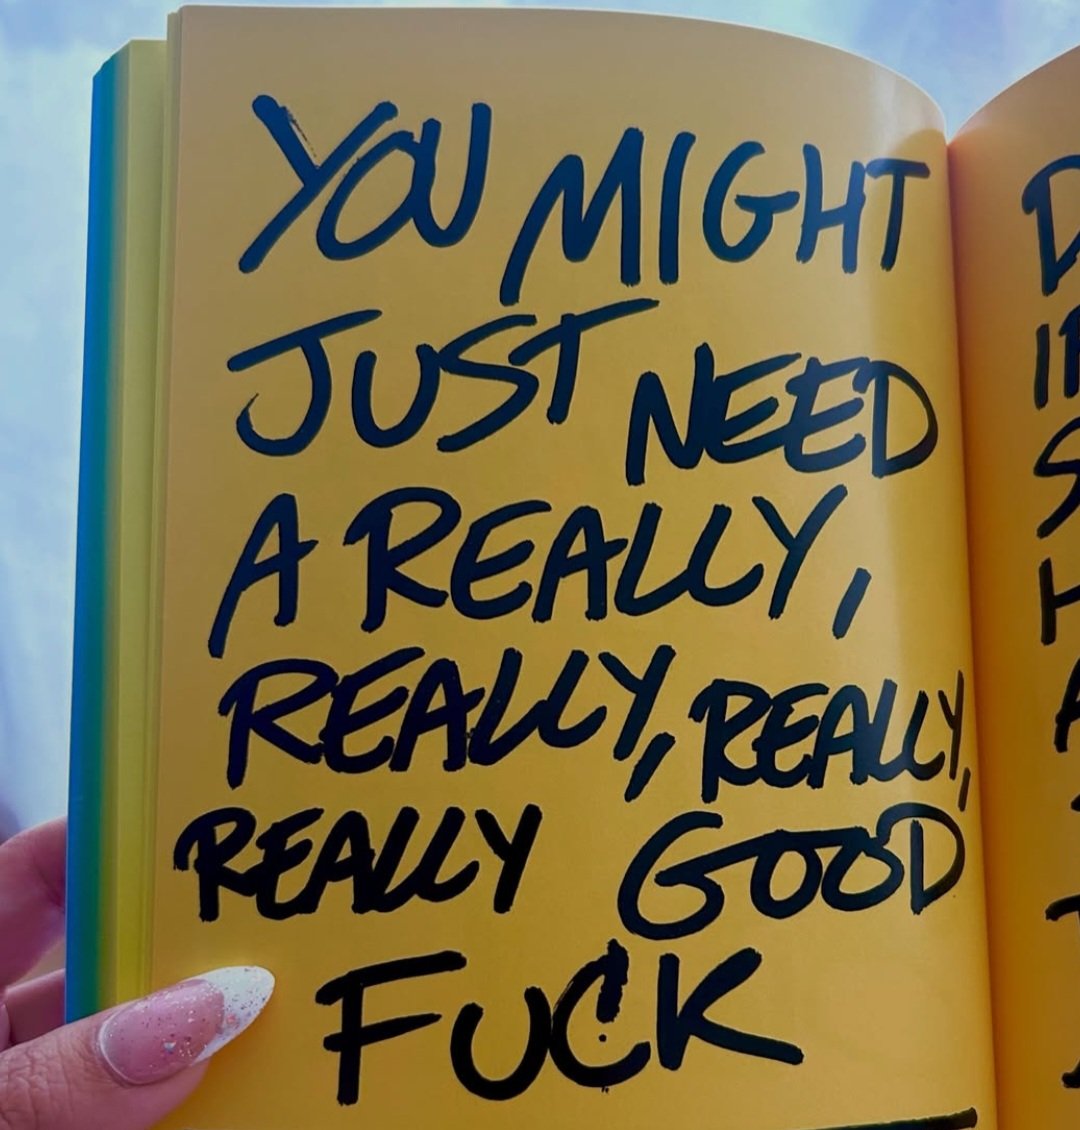 YOU MIGHT
JUST NEED
A REALLY,
REALLY, REALLY,
REALLY GOOD
FUCK